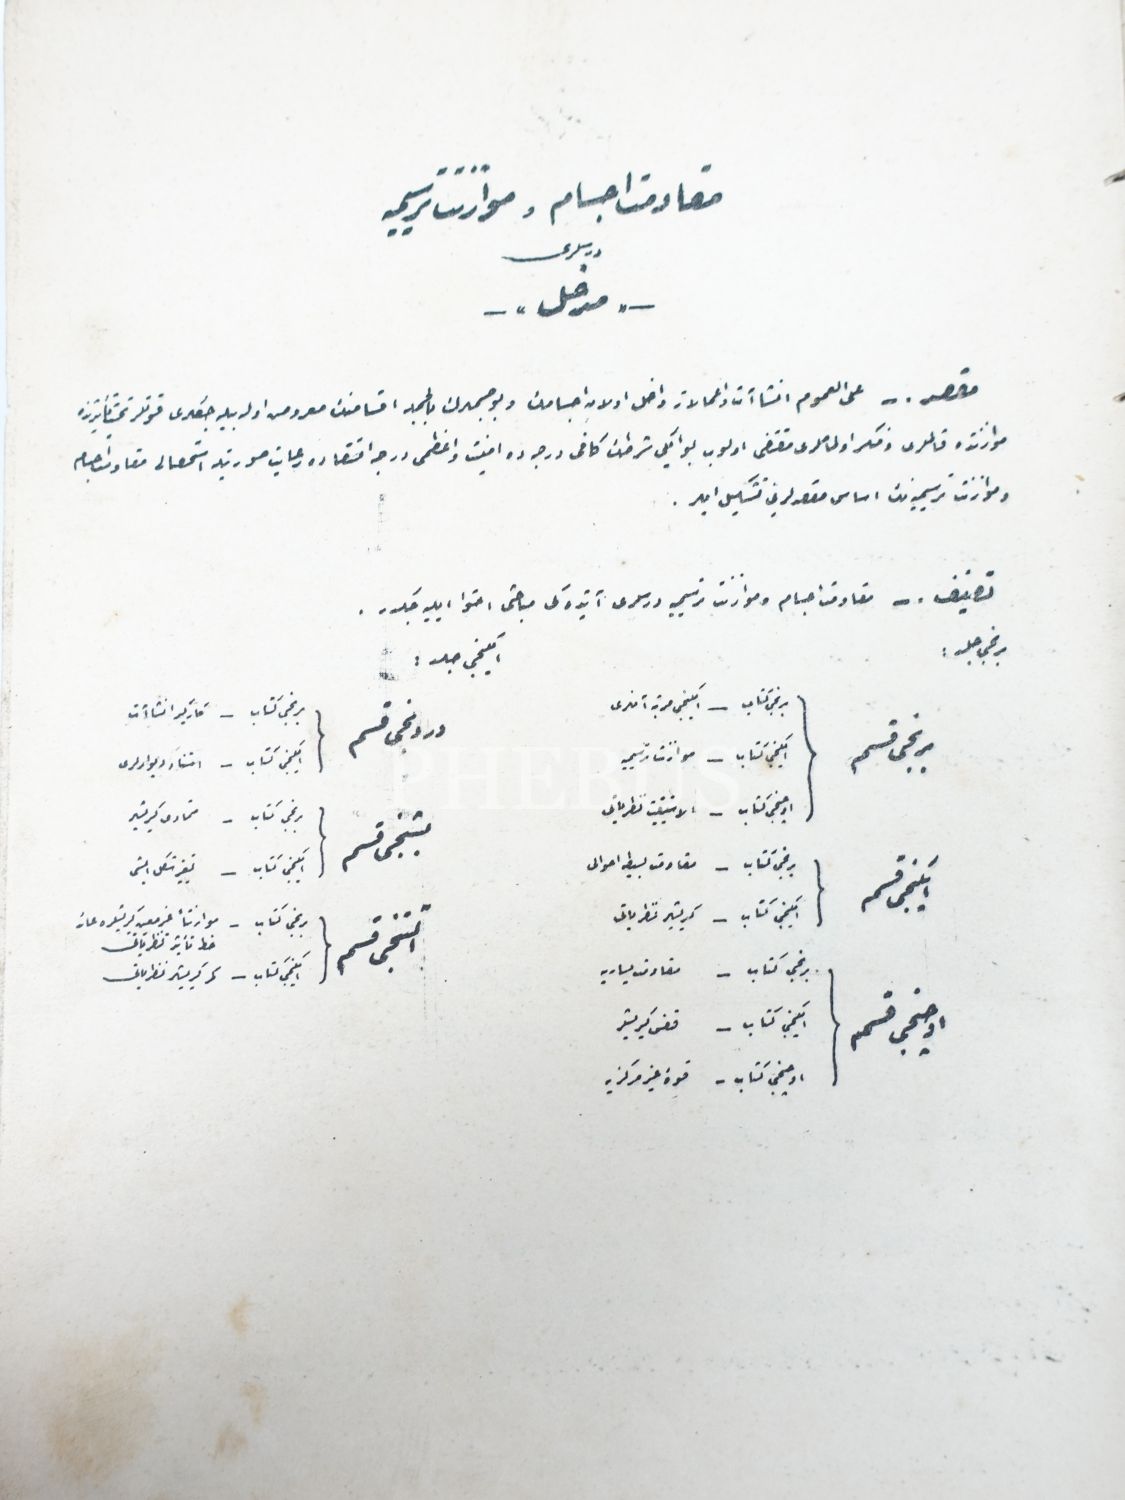 مقاومت اجسام و موازنت ترسیمیه
درسلری
—» مدخل «—
مقصد .— علی العموم انشاآت و اعمالاته داخل اولان اجسامك و بو جسملرك بالجمله اقسامنك معروض اوله بیله جكلری قوتلر تحت تأثیرنده
موازنتده قاللری و اولمالری مقتضی اولوب بو ایكی شرطك كافی درجه ده امنیت و اعظمی درجه اقتصاده رعایت صورتیله استحصالی مقاومت اجسام
و موازنت ترسیمیه نك اساس مقصدلرینی تشكیل ایدر .
تصنیف .— مقاومت اجسام و موازنت ترسیمیه درسلری آتیده كی مباحثی احتوا ایلیه جكدر .
برنجی جلد :
برنجی قسم
برنجی كتاب — ایكنجی مرتبه آنلری
ایكنجی كتاب — موازنت ترسیمیه
اوچنجی كتاب — الاستیقیت نظریاتی
ایكنجی قسم
برنجی كتاب — مقاومت بسیط احوالی
ایكنجی كتاب — كریشلر نظریاتی
اوچنجی قسم
برنجی كتاب — مقاومت یساریه
ایكنجی كتاب — قفس كریشلر
اوچنجی كتاب — قوهٔ غیر مركزیه
ایكنجی جلد :
دردنجی قسم
برنجی كتاب — كارگیر انشاآت
ایكنجی كتاب — استناد دیوارلری
بشنجی قسم
برنجی كتاب — متمادی كریشلر
ایكنجی كتاب — تغیر شكل ایشی
آلتنجی قسم
برنجی كتاب — موازنتاً غیر معین كریشلره عائد
خط تأثیر نظریاتی
ایكنجی كتاب — كمر كریشلر نظریاتی
PHEBUS